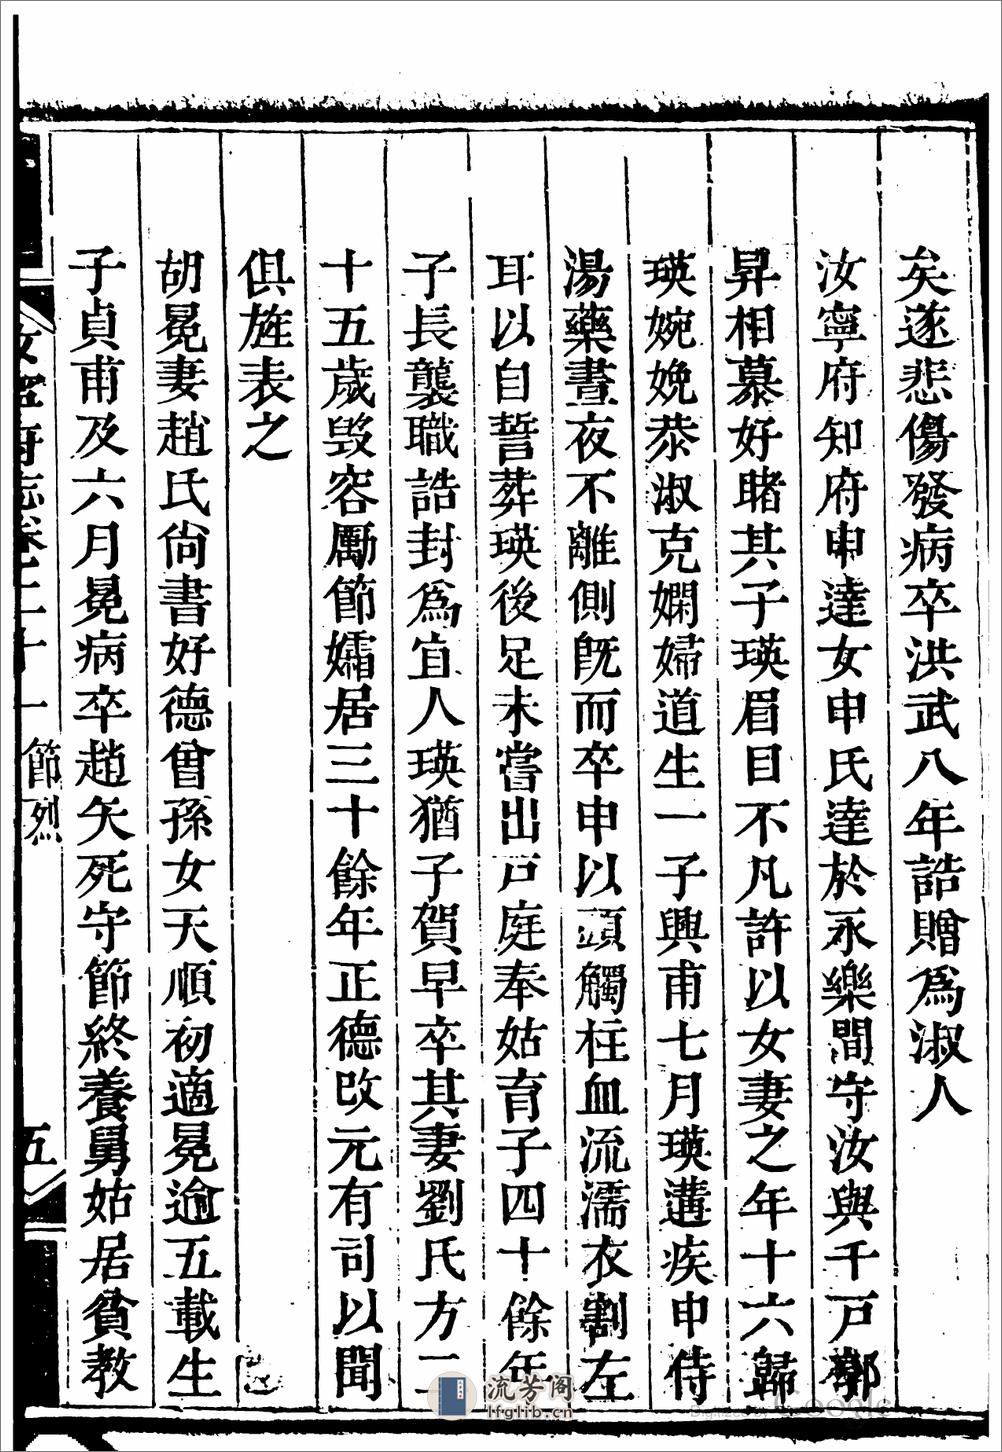 矣遂悲傷發病卒洪武八年誥贈爲淑人
汝寧府知府申達女申氏達於永樂間守汝與千戸郭
昇相慕好睹其子瑛眉目不凡許以女妻之年十六歸
瑛婉娩恭淑克嫻婦道生一子興甫七月瑛遘疾申侍
湯藥晝夜不離側旣而卒申以頭觸柱血流濡衣割左
耳以自誓葬瑛後足未嘗出戸庭奉姑育子四十餘年
子長襲職誥封爲宜人瑛猶子賀早卒其妻劉氏方二
十五歲毀容厲節孀居三十餘年正德改元有司以聞
俱旌表之
胡冕妻趙氏尙書好德曾孫女天順初適冕逾五載生
子貞甫及六月冕病卒趙矢死守節終養舅姑居貧教
汝寧府志卷二十一 節烈 五
流芳阁
lfglib.cn
Digitized by Google